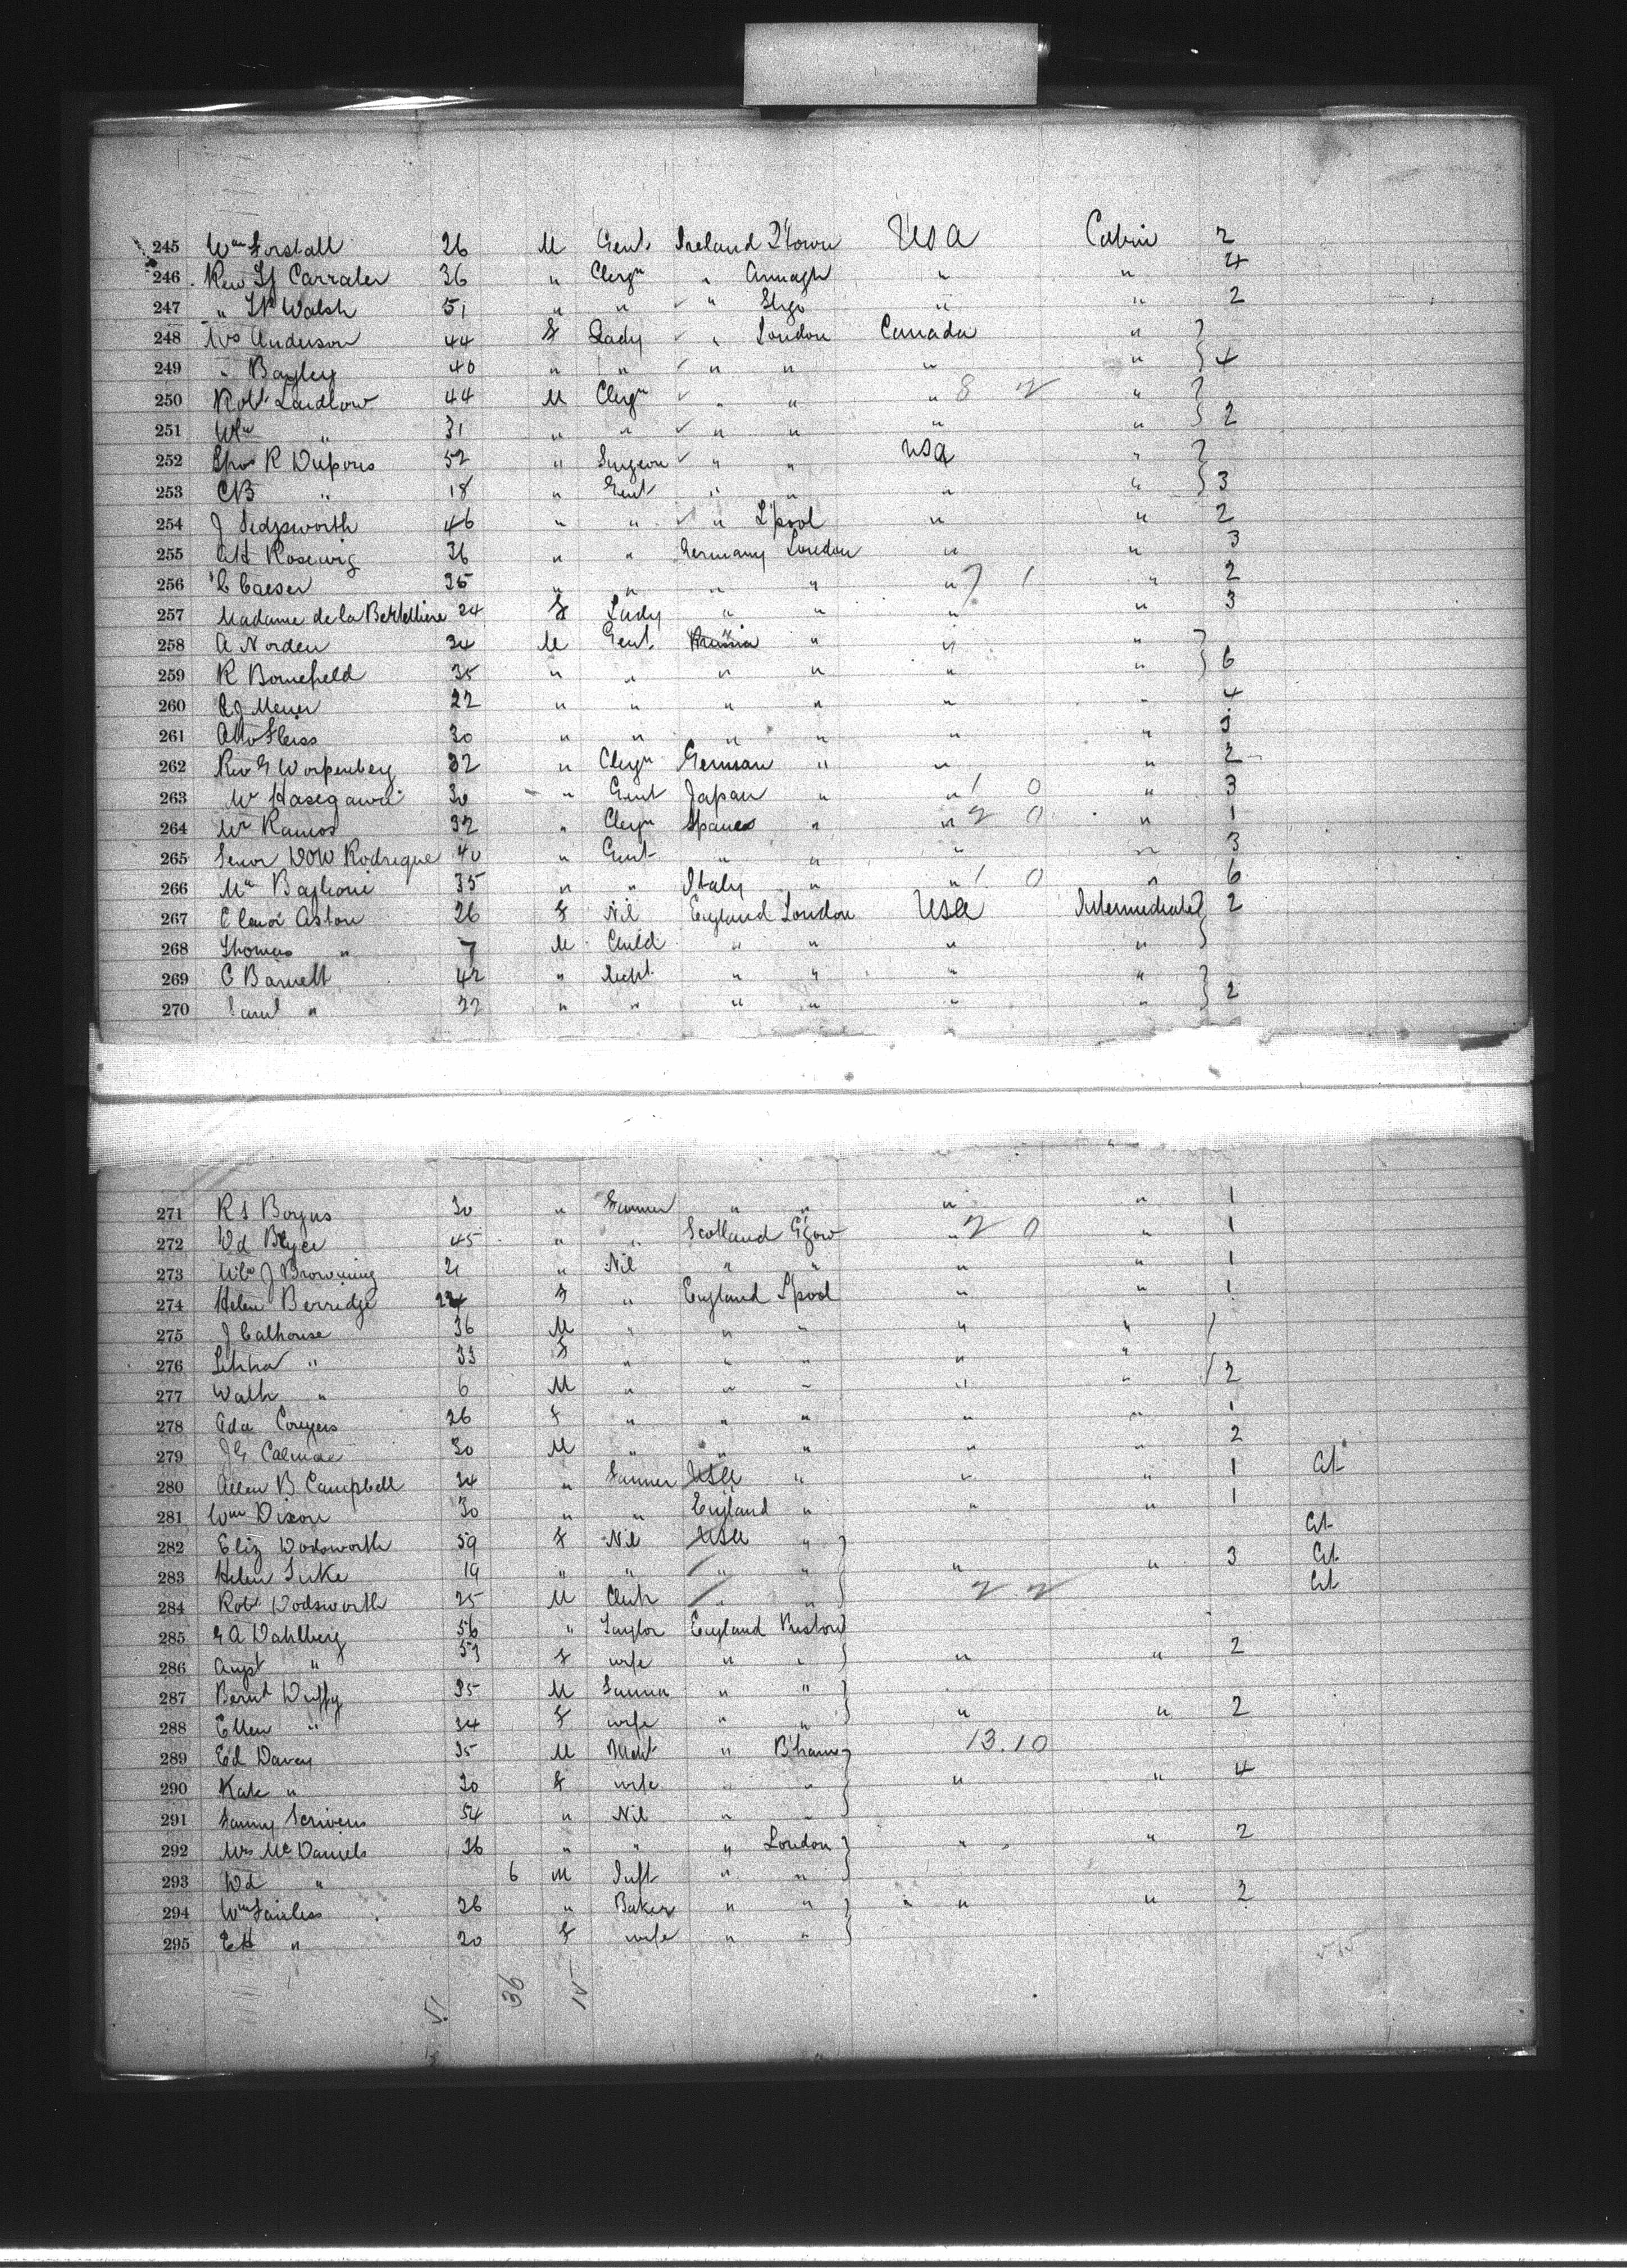 245 Wm Forstall 26 M Gent. Ireland Q'town USA Cabin 2
246 Rev Carrater 36 " Clergn " Armagh " " 4
247 " Walsh 51 " " " Sligo " " 2
248 Mrs Anderson 44 F Lady " London Canada "
249 " Bayley 40 " " " " " " 4
250 Robt Laidlow 44 M Clergn " " " 8 2 "
251 Wm " 31 " " " " " " 2
252 R Dupons 52 " Surgeon " " USA "
253 CB " 18 " Gent " " " " 3
254 J Sedgsworth 46 " " " L'pool " " 2
255 Rosewig 36 " " Germany London " " 3
256 C Caeser 35 " " " " " 7 1 " 2
257 Madame de la Bertelliere 24 F Lady " " " " 3
258 A Norden 34 M Gent. " " "
259 R Bomefield 35 " " " " " " 6
260 Meyer 22 " " " " " " 4
261 Otto Fleiss 30 " " " " " "
262 Rev G Worpenberg 32 " Clergn German " " " 2
263 Mr Hasegawa 30 " Gent Japan " " 1 0 " 3
264 Mr Ramos 32 " Clergn " " 2 0 " 1
265 Senor Rodrique 40 " Gent " " " " 3
266 Mr Baglioni 35 " " Italy " " 1 0 " 6
267 Elenor Aston 26 F Nil England London USA Intermediate 2
268 Thomas " 7 M Child " " " "
269 C Barnett 42 " " " " "
270 " 22 " " " " " " 2
271 R S Boyns 30 " Farmer " " " " 1
272 45 " " Scotland G'gow " 2 0 " 1
273 Wm J Browning 21 " Nil " " " " 1
274 Helen Berridge 22 F " England L'pool " " 1
275 J Calhouse 36 M " " " " "
276 " 33 F " " " " "
277 Walt " 6 M " " " " " 2
278 Ada Conyers 26 F " " " " " 1
279 JG Calmae 30 M " " " " " 2
280 Allen B Campbell 34 " Farmer USA " " " 1 Ct
281 Wm Dixon 30 " " England " " " 1
282 Eliz Wodsworth 59 F Nil USA " Ct
283 Helen 19 " " " " " " 3 Ct
284 Robt Wodsworth 25 M Clerk " " 2 2 Ct
285 Dahlberg 56 " Taylor England Preston
286 Augst " 53 F wife " " " " 2
287 Bernd Duffy 35 M Farmer " "
288 Ellen " 34 F wife " " " " 2
289 Ed Davey 35 M " B'ham 13.10
290 Kate " 30 F wife " " " " 4
291 Fanny Scrivens 54 " Nil " "
292 Mrs McDaniels 36 " " " London " " 2
293 " 6 M Inft " "
294 Wm Fairless 26 " Baker " " " " 2
295 EH " 20 F wife " "
51 36 15